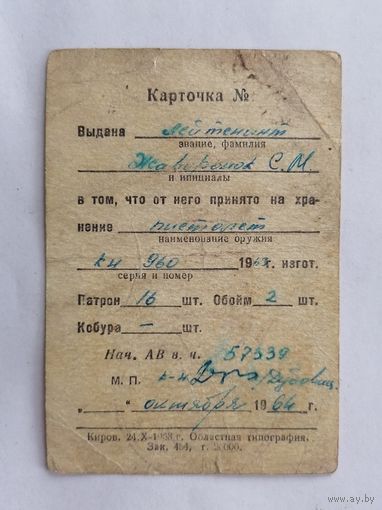 Карточка №
Выдана лейтенант
звание, фамилия
Жаворонок С.М.
и инициалы
в том, что от него принято на хра-
нение пистолет
наименование оружия
КН 960 196 г. изгот.
серия и номер
Патрон 16 шт. Обойм 2 шт.
Кобура — шт.
Нач. АВ в. ч. 57339
М. П. к-н
„ “ октября 1964 г.
Киров. 24.X-1958 г. Областная типография.
Зак. 484, т.
ay.by